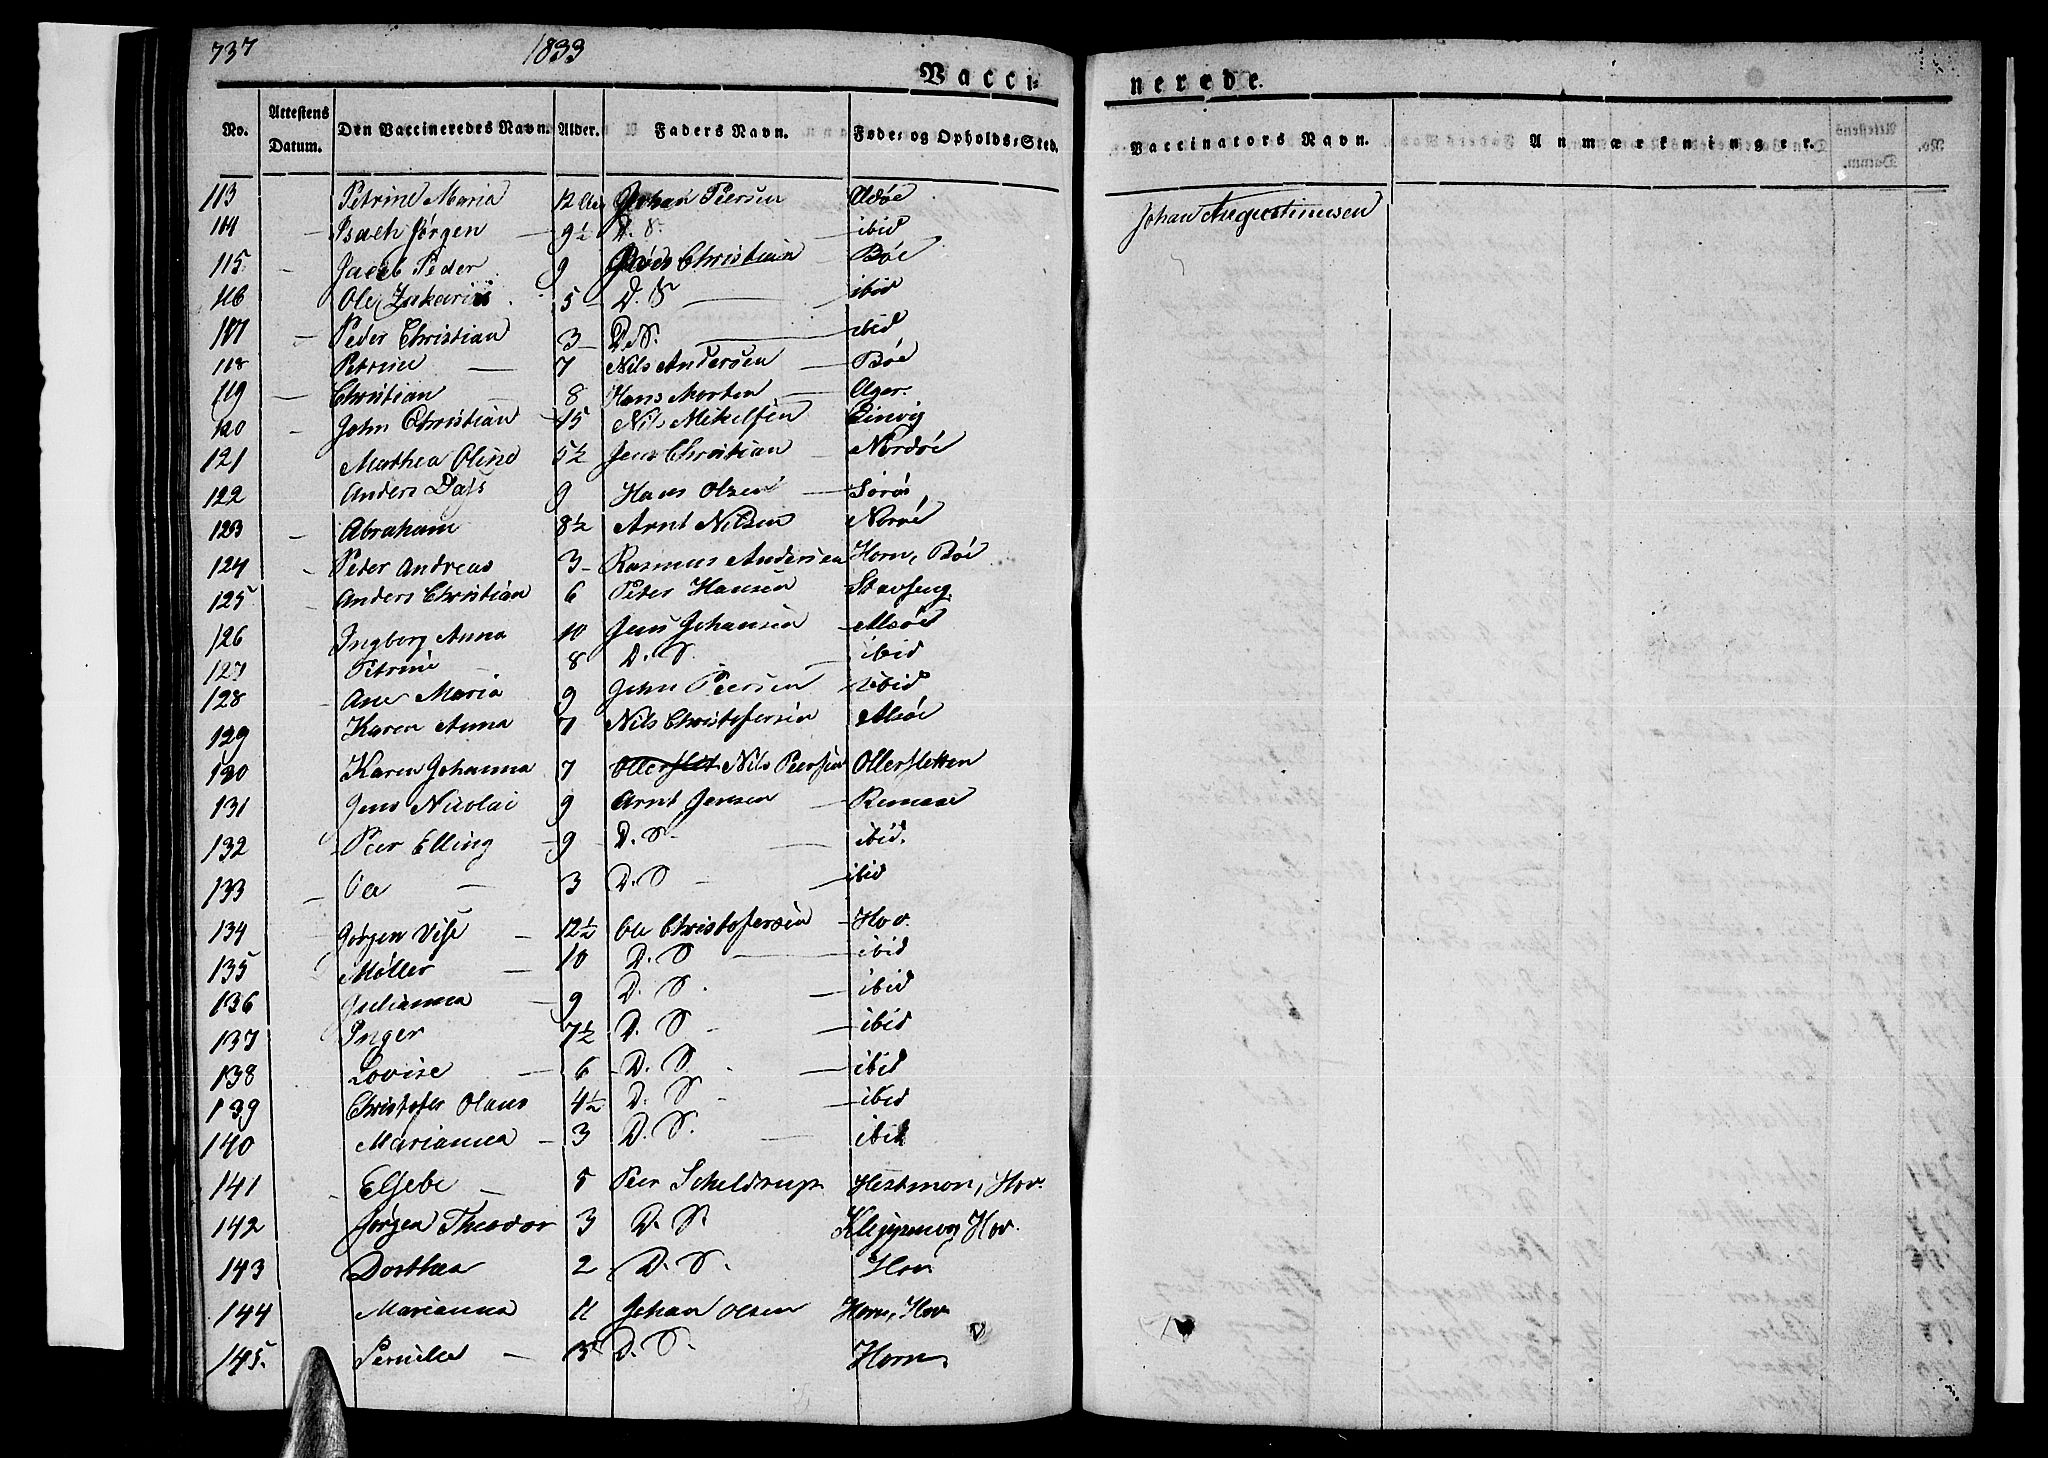 737 1833
Vacci-
nerede.
No. Attestens Datum. Den Vaccineredes Navn. Alder. Faders Navn. Føde- og Opholds-Sted.
Vaccinators Navn. Anmærkninger.
113 Petrine Maria 12 Johan Peersen
Johan Augustinusen
114 Isach Jørgen 9½ D. S. ibid
115 Jacob Peder 9 Christian Bøe
116 Ole Zakarias 5 D. S ibid
117 Peder Christian 3 D. S. ibid
118 Petrine 7 Nils Andersen Bøe
119 Christian 8 Hans Morten Ager.
120 John Christian 15 Nils Mikelsen Einvig
121 Mathea Oline 5½ Jens Christian Nordøe
122 Anders Dass 9 Hans Olsen Sorøe
123 Abraham 8½ Arnt Nilsen Norøe
124 Peder Andreas 3 Rasmus Andersen Horn, Bøe
125 Anders Christian 6 Peter Hansen Stavseng
126 Ingborg Anna 10 Jens Johansen Alsøe
127 Petrine 8 D. S. ibid
128 Ane Maria 9 John Peersen ibid
129 Karen Anna 7 Nils Christofersen Alsøe
130 Karen Johanna 7 Ollerslet Nils Peersen Ollersletten
131 Jens Nicolai 9 Arnt Jensen Remaae
132 Peer Elling 9 D. S. ibid.
133 Ole 3 D. S ibid
134 Jørgen Vise 12½ Ole Christofersen Hov.
135 Møller 10 D. S ibid
136 Julianna 9 D. S. ibid
137 Inger 7½ D. S ibid
138 Lovise 6 D. S ibid
139 Christofer Olaus 4½ D. S ibid
140 Marianna 3 D. S. ibid
141 Elsebe 5 Peer Scheldrup Hestmon, Hov.
142 Jørgen Theodor 3 D. S. Hov.
143 Dorthea 2 D. S. Hov
144 Marianna 11 Johan Olsen Horn, Hov
145. Pernille D. S. Horn